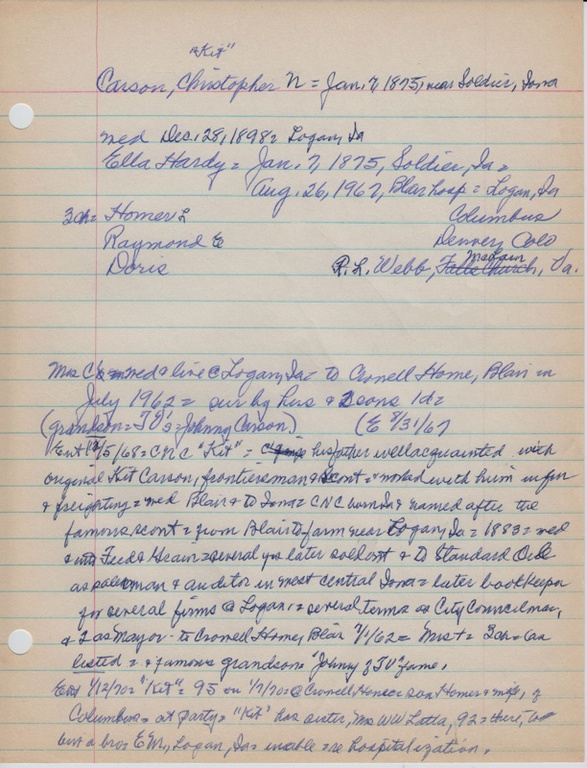 "Kit"
Carson, Christopher N = Jan. 7, 1875, near Soldier, Iowa
med Dec. 28, 1898 = Logan, Ia
Ella Hardy = Jan. 7, 1875, Soldier, Ia =
Aug. 26, 1967, Blair hosp = Logan, Ia
3ch = Homer L Columbus
Raymond E Denver, Colo
Doris R. L. Webb, Falls Church, McLean Va.
Mrs C's med & live @ Logan, Ia = to Crowell Home, Blair in
July 1962 = sur by hus & 2 sons 1d =
(grandson = TV's = Johnny Carson) (E 8/31/67
Ent /5/68 = CNC "Kit" = his father well acquainted with
original Kit Carson, frontiersman & scout = & worked with him in fur
& freighting = med Blair & to Iowa = CNC born Ia & named after the
famous scout = from Blair to farm near Logan, Ia = 1883 = med
& into Feed & Grain = several yrs later sold out & to Standard Oil
as salesman & auditor in west central Iowa = later bookkeeper
for several firms @ Logan = several terms as City Councilman,
& 2 as Mayor - to Crowell Home, Blair 7/1/62 = Mrs + = 3ch = as
listed = & famous grandson "Johnny of TV" fame.
Ent 1/12/70 = "Kit" = 95 on 1/7/70 @ Crowell Home = son Homer & wife, of
Columbus = at party = "Kit" has sister, Mrs WW Latta, 92 = there, too
but a bro E M, Logan, Ia = unable = re hospitalization.